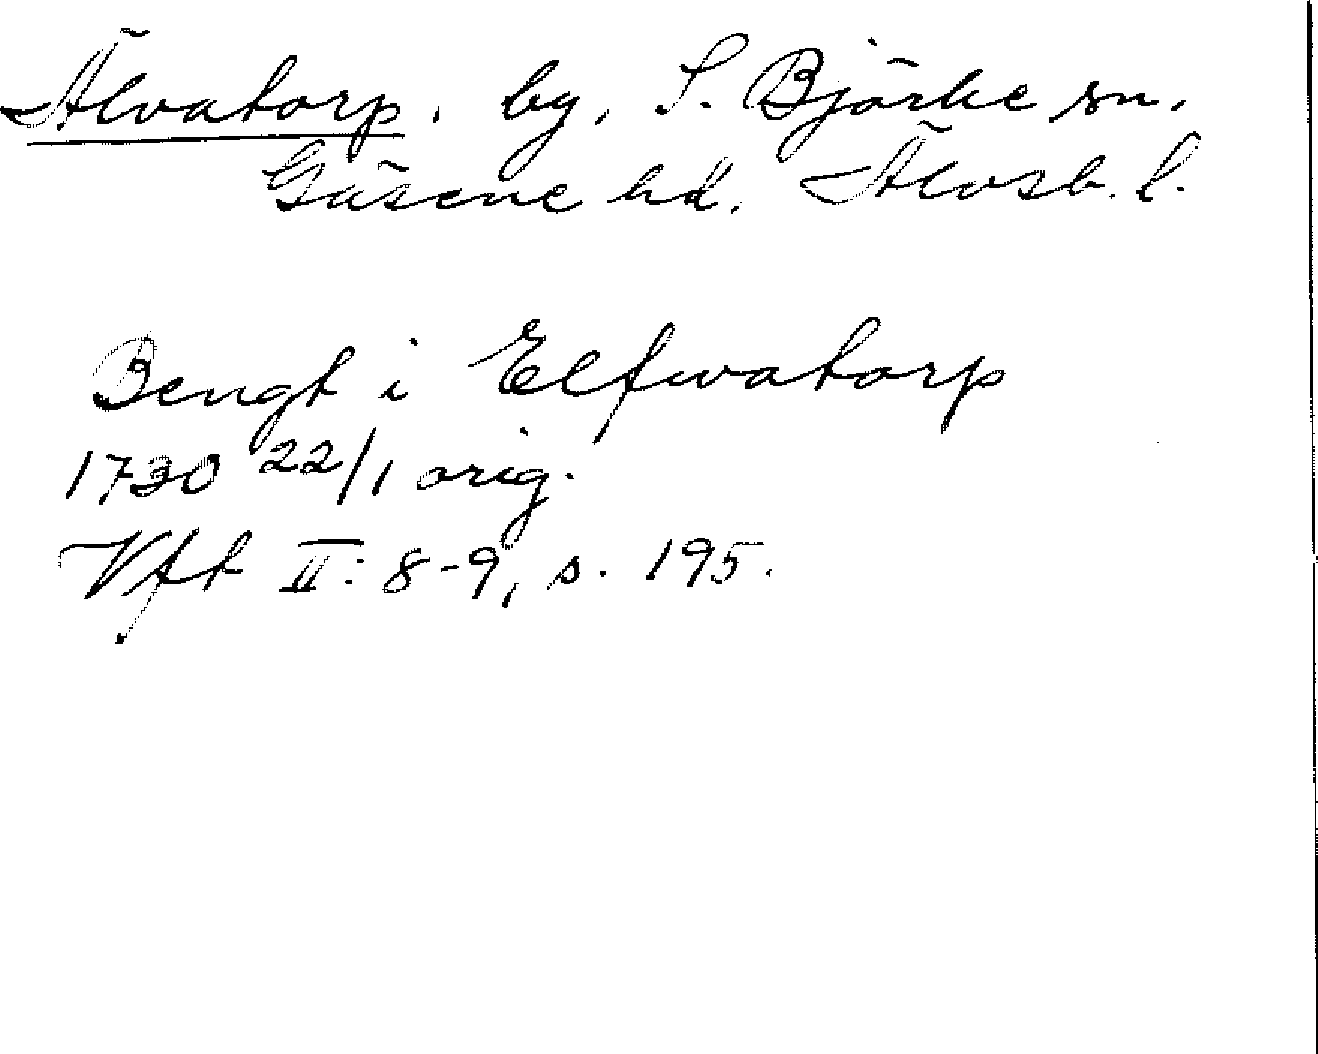 Älvatorp, by, S. Björke sn.
Gäsene hd. Älvsb. l.
Bengt i Elfwatorp
1730 22/1 orig.
Vft II: 8-9, s. 195.